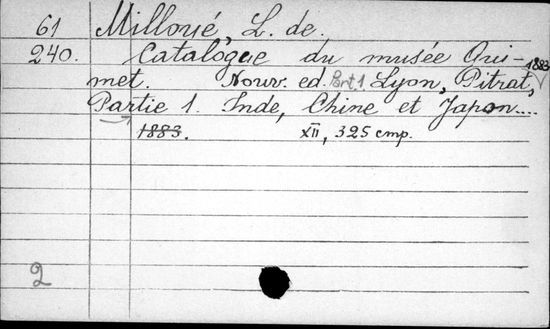 61 Milloué, L. de.
240. Catalogue du musée Gui- 1883
met. Nouv. ed. Part 1 Lyon, Pitrat,
Partie 1. Inde, Chine et Japon....
1883. XII, 325 стр.
2